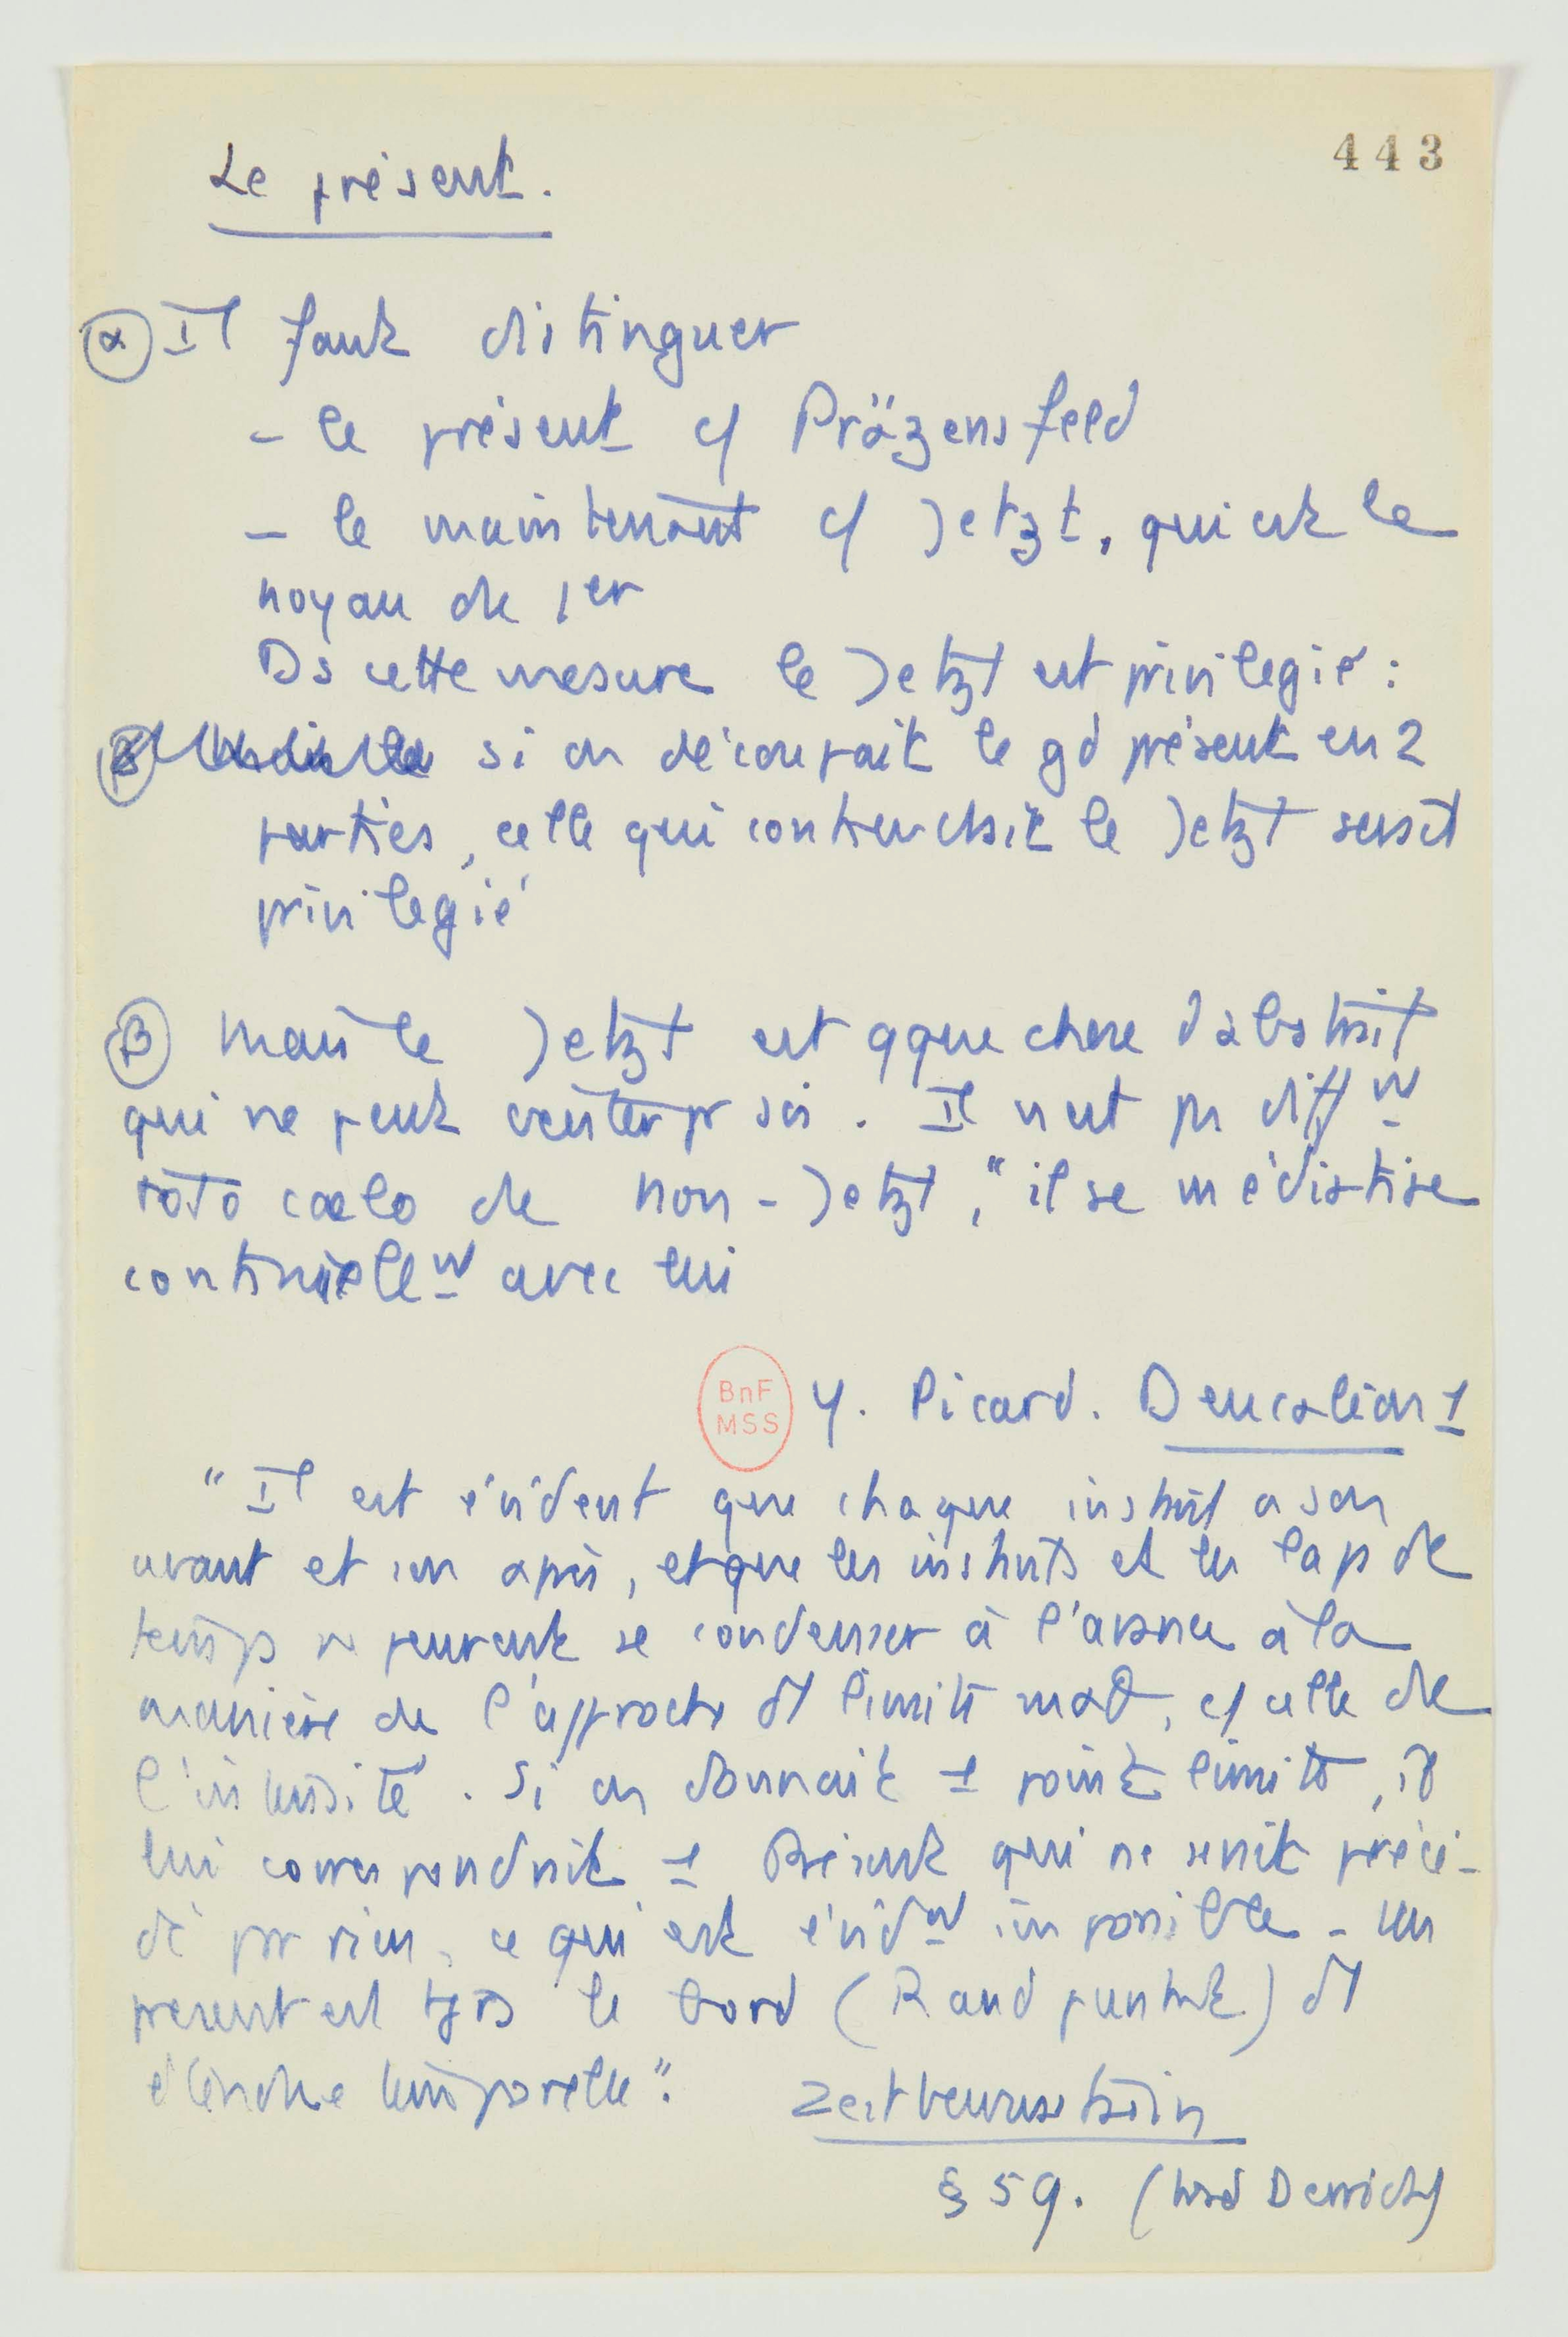 443
Le présent.
α Il faut distinguer
- le présent c/ Präzensfeld
- le maintenant c/ Jetzt, qui est le
noyau de 1er
Ds cette mesure le Jetzt est privilegié :
si on découpait le gd présent en 2
parties, celle qui contiendrait le Jetzt serait
privilegié
β Mais le Jetzt est qque chose d'abstrait
qui ne peut exister pr soi. Il n'est pas diffm
toto caelo de non-Jetzt, "il se médiatise
continuellm avec lui
BnF
MSS
Y. Picard. Deucalion 1
"Il est évident que chaque instant a son
avant et son après, et que les instants et les laps de
temps ne peuvent se condenser à l'avance à la
manière de l'approche d'1 limite mathé, c/ celle de
l'intensité. Si on donnait 1 point limite, il
lui correspondrait 1 Présent qui ne serait précé-
dé par rien, ce qui est évidm impossible - Un
present est tjrs le bord (Randpunkt) d'1
étendue temporelle".
Zeitbewusstsein
§ 59. (trad Derrida)